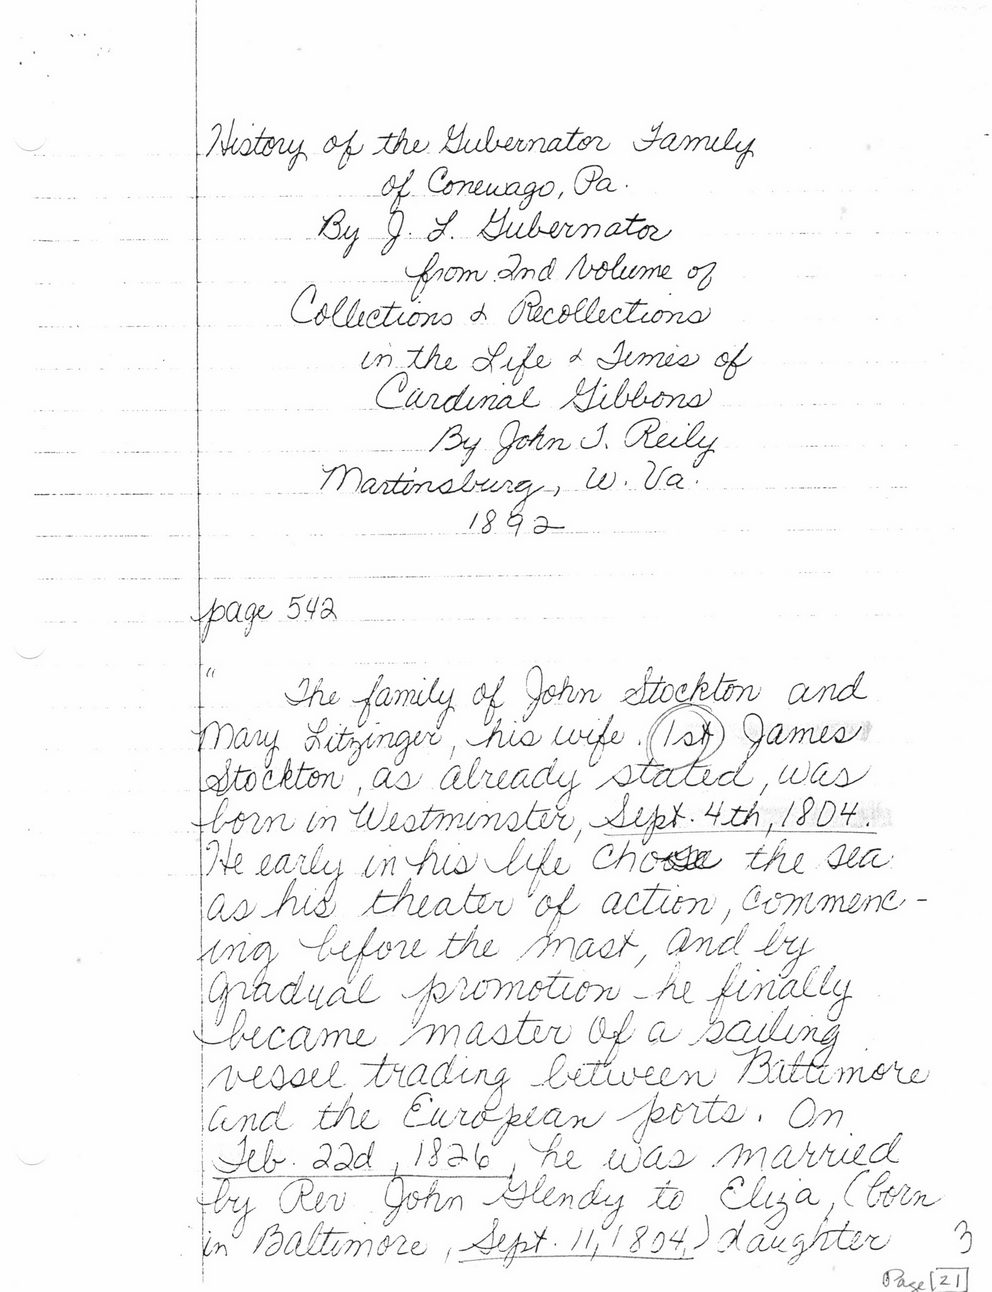 History of the Gubernator Family
of Conewago, Pa.
By J. L. Gubernator
from 2nd volume of
Collections & Recollections
in the Life & Times of
Cardinal Gibbons
By John T. Reily
Martinsburg, W. Va.
1892
page 542
" The family of John Stockton and
Mary Litzinger, his wife. 1st James
Stockton, as already stated, was
born in Westminster, Sept. 4th, 1804.
He early in his life choose the sea
as his theater of action, commenc-
ing before the mast, and by
gradual promotion he finally
became master of a sailing
vessel trading between Baltimore
and the European ports. On
Feb. 22d, 1826, he was married
by Rev John Glendy to Eliza, (born
in Baltimore, Sept. 11, 1804,) daughter
3
Page 21